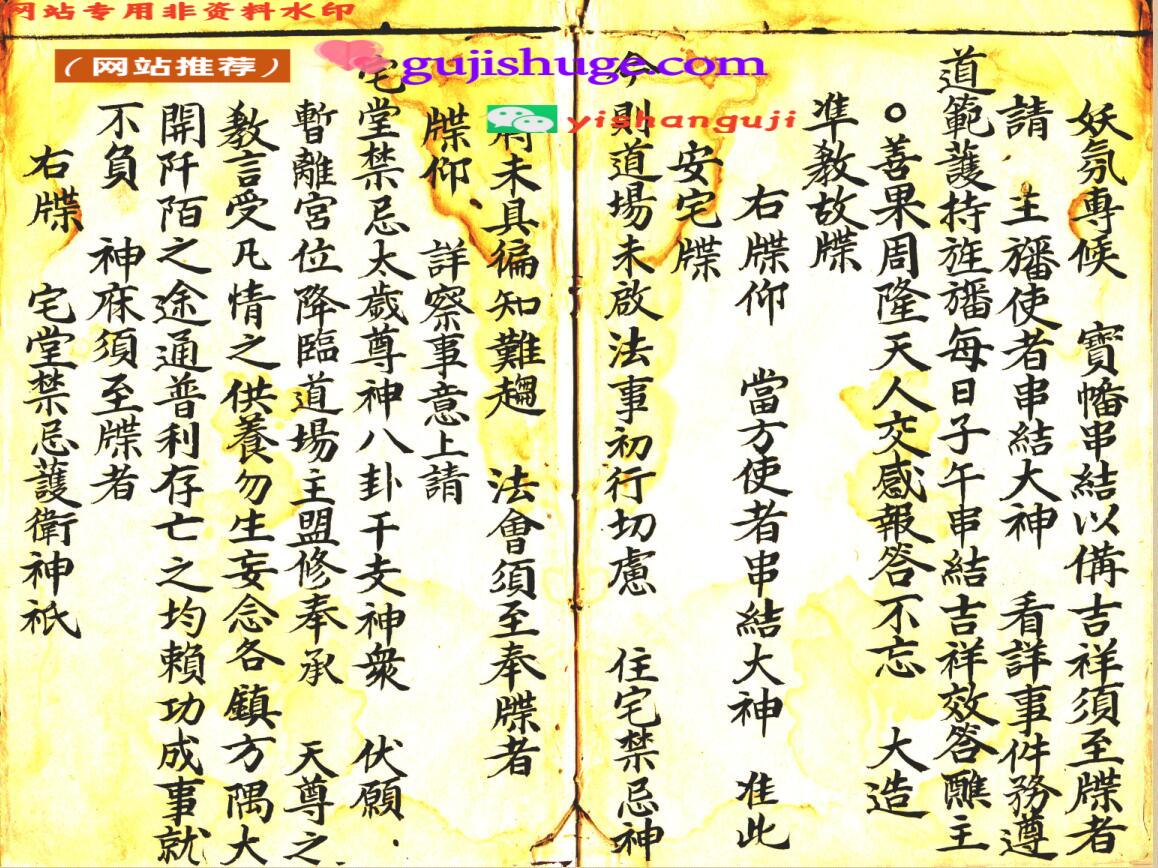 网站专用非资料水印
（网站推荐）
gujishuge.com
yishanguji
妖氛專候　寶幡串結以備吉祥須至牒者
請　主旛使者串結大神　看詳事件務遵
道範護持旌旛每日子午串結吉祥效答醮主
○善果周隆天人交感報答不忘　大造
准教故牒
右牒仰　當方使者串結大神　准此
安宅牒
今則道場未啟法事初行切慮　住宅禁忌神
將未具徧知難趨　法會須至奉牒者
牒仰．詳察事意上請
宅堂禁忌太歲尊神八卦干支神衆　伏願．
暫離宮位降臨道場主盟修奉承　天尊之
教言受凡情之供養勿生妄念各鎮方隅大
開阡陌之途通普利存亡之均賴功成事就
不負　神庥須至牒者
右牒　宅堂禁忌護衛神祇